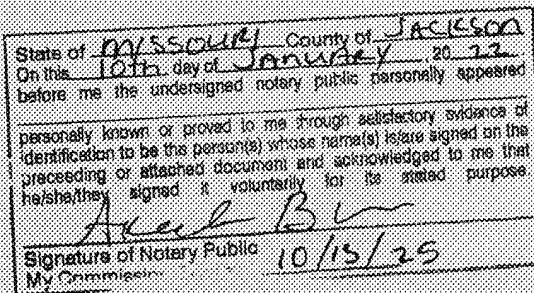 State of MISSOURI County of JACKSON
On this 10th day of JANUARY, 20 22
before me the undersigned notary public personally appeared
personally known or proved to me through satisfactory evidence of
identification to be the person(s) whose name(s) is/are signed on the
preceeding or attached document and acknowledged to me that
he/she/they signed it voluntarily for its stated purpose.
Signature of Notary Public
10/15/25
My Commission